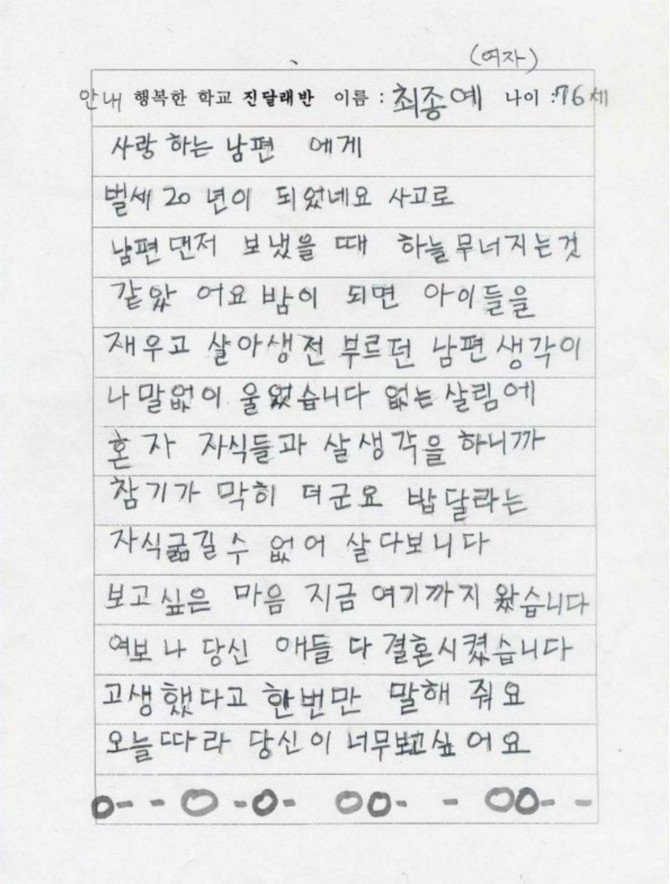 (여자)
안내 행복한 학교 진달래반 이름 : 최종예 나이 : 76세
사랑 하는 남편 에게
벌세 20 년이 되었네요 사고로
남편 댄저 보냈을 때 하늘 무너지는것
같았 어요 밤이 되면 아이들을
재우고 살아생전 부르던 남편 생각이
나 말없이 울었습니다 없는 살림에
혼자 자식들과 살생각을 하니까
참기가 막히 더군요 밥달라는
자식굶길수 없어 살다보니다
보고싶은 마음 지금 여기까지 왔습니다
여보 나 당신 애들 다 결혼시켰습니다
고생했다고 한번만 말해 줘요
오늘따라 당신이 너무보고싶어요